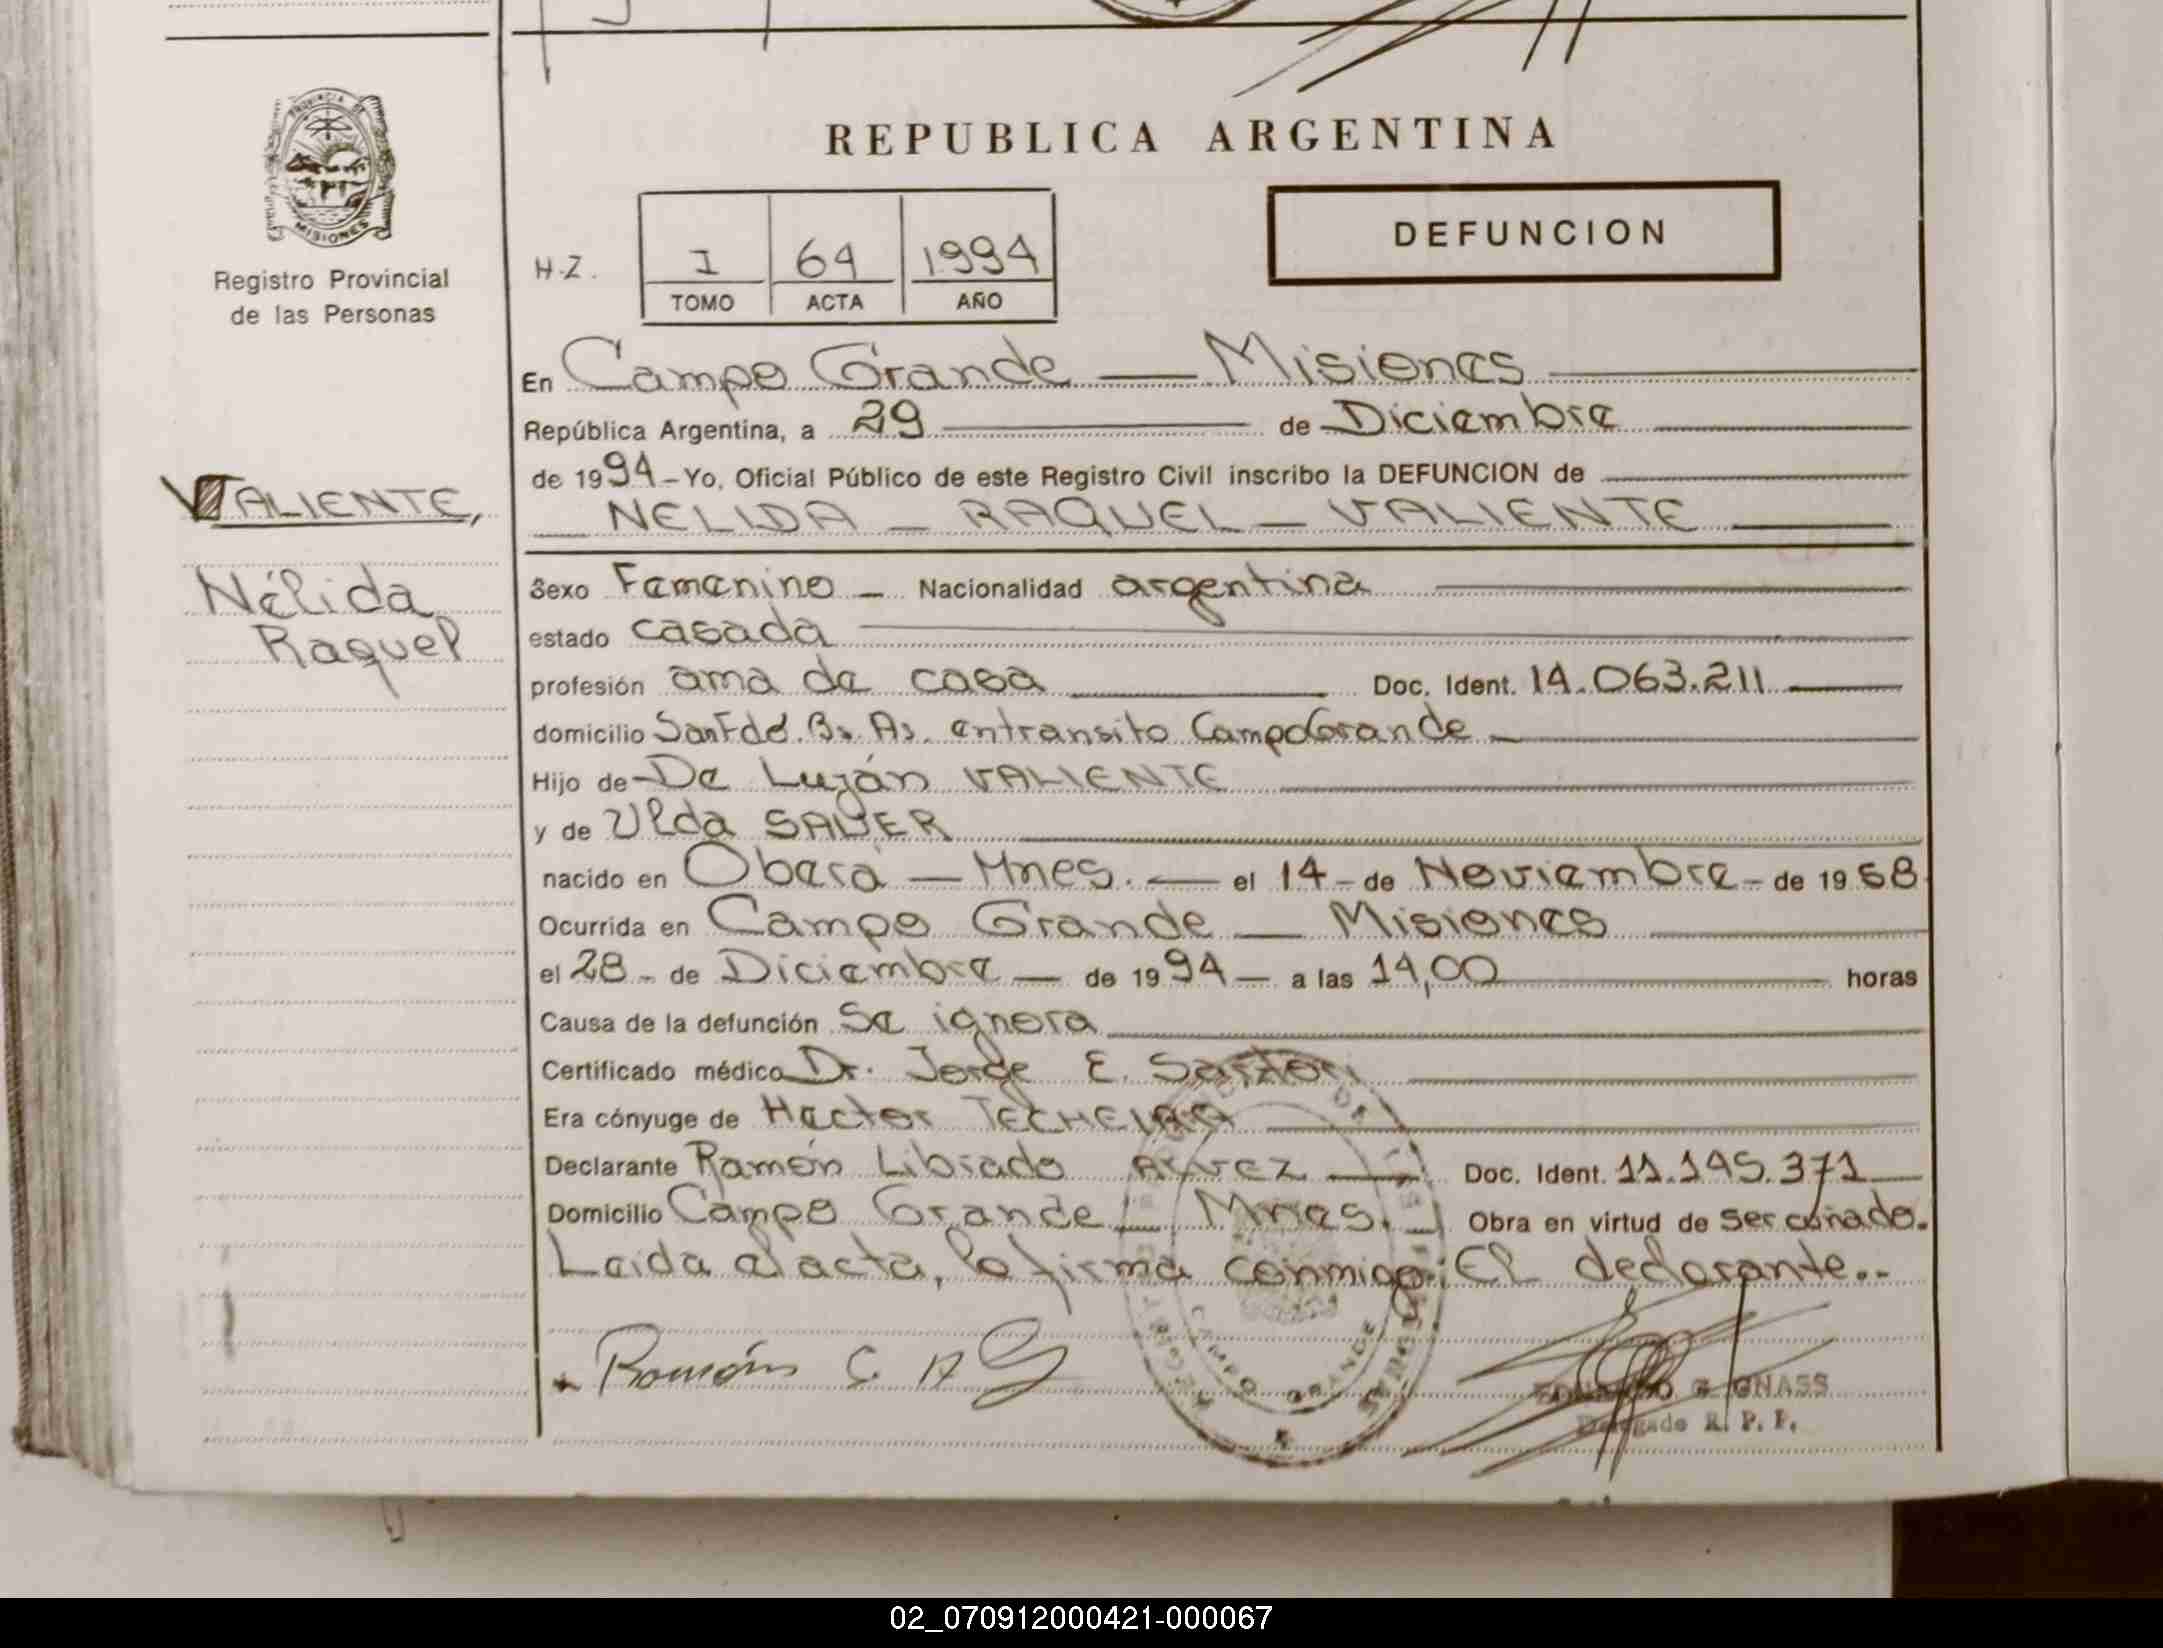 PROVINCIA DE
MISIONES
Registro Provincial
de las Personas
VALIENTE,
Nélida
Raquel
REPUBLICA ARGENTINA
DEFUNCION
H.Z. I 64 1994
TOMO ACTA AÑO
En Campo Grande — Misiones
República Argentina, a 29 de Diciembre
de 1994 - Yo, Oficial Público de este Registro Civil inscribo la DEFUNCION de
NELIDA — RAQUEL — VALIENTE
Sexo Femenino — Nacionalidad argentina
estado casada
profesión ama de casa Doc. Ident. 14.063.211
domicilio San Fdo. Bs. As. entransito Campo Grande
Hijo de De Luján VALIENTE
y de Ulda SAUER
nacido en Oberá — Mnes. — el 14 - de Noviembre - de 19
Ocurrida en Campo Grande — Misiones
el 28 - de Diciembre — de 1994 — a las 14,00 horas
Causa de la defunción Se ignora
Certificado médico Dr. Jorge E.
Era cónyuge de Hector TECHEIRA
Declarante Ramón Librado ALVEZ — Doc. Ident. 11.195.371
Domicilio Campo Grande — Mnes. — Obra en virtud de ser cuñado.
Leida el acta, la firma conmigo: El declarante..
Ramón
CAMPO GRANDE
G. GNASS
Delegado R. P. P.
02_070912000421-000067